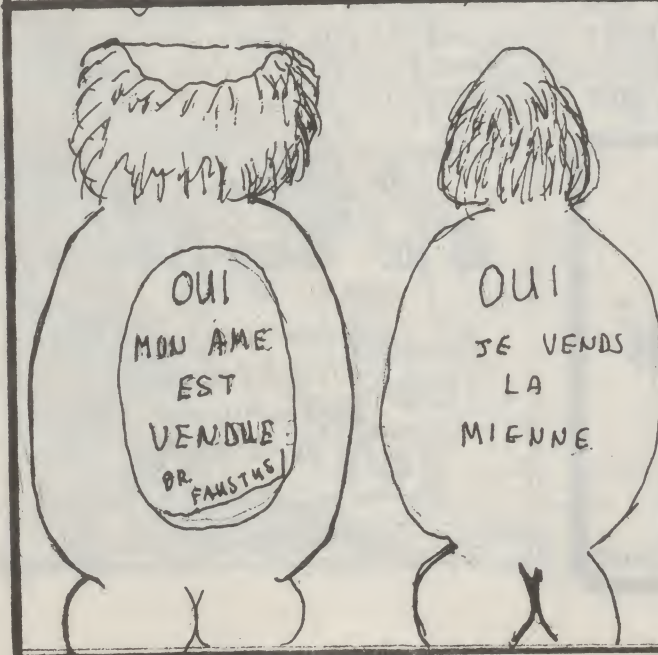 OUI
MON ÂME
EST
VENDUE
DR.
FAUSTUS
OUI
JE VENDS
LA
MIENNE